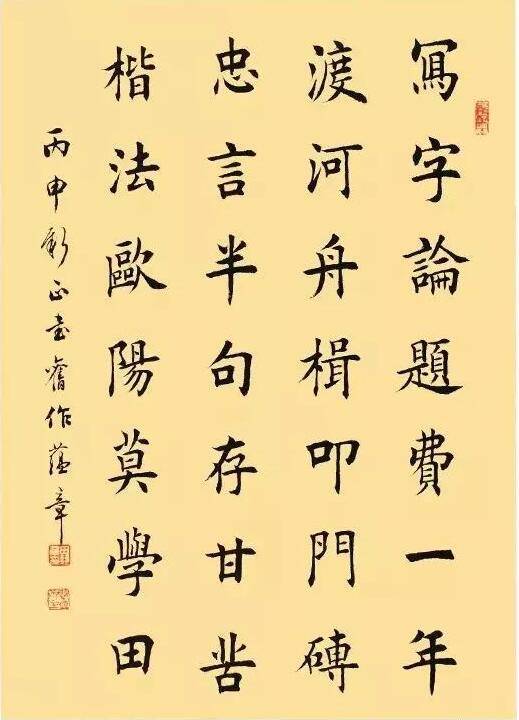 冩字論題費一年
渡河舟楫叩門磚
忠言半句存甘苦
楷法歐陽莫學田
丙申新正書舊作蕴章